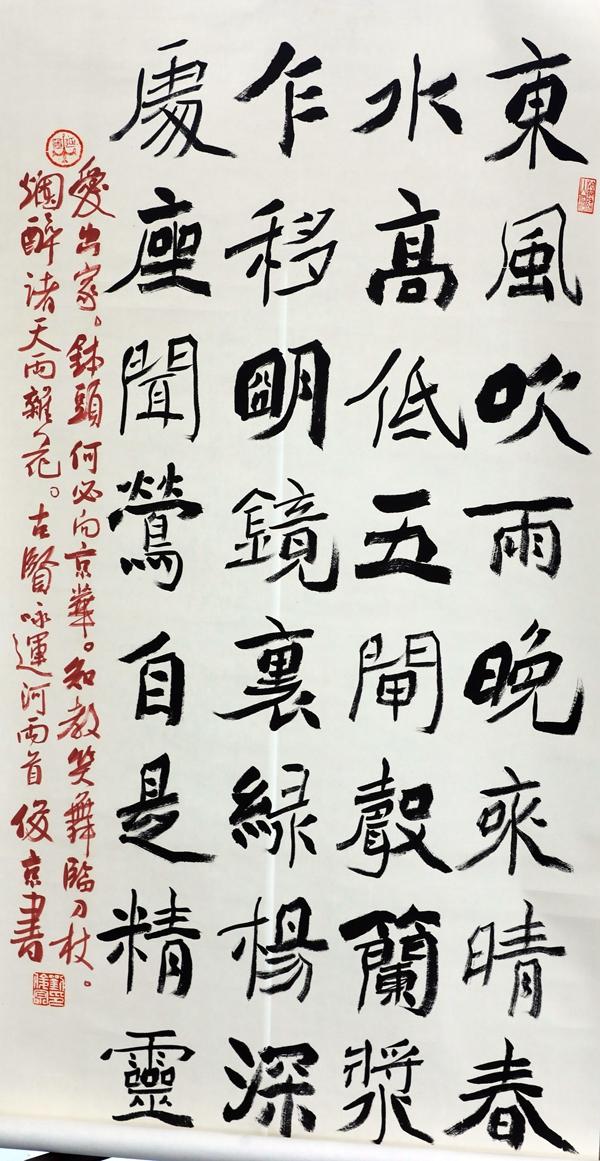 東風吹雨晚來晴春
水高低五閘聲蘭漿
乍移明鏡裏綠楊深
處座聞鶯自是精靈
愛出家。鉢頭何必向京華。知教笑舞臨刀杖。
爛醉諸天雨雜花。古賢咏運河兩首 俊京書